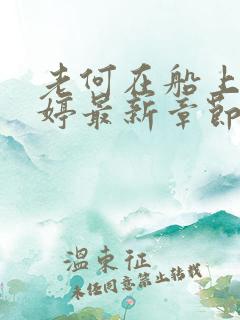 老何在船上
婷最新章节
温東征
未经同意禁止转载